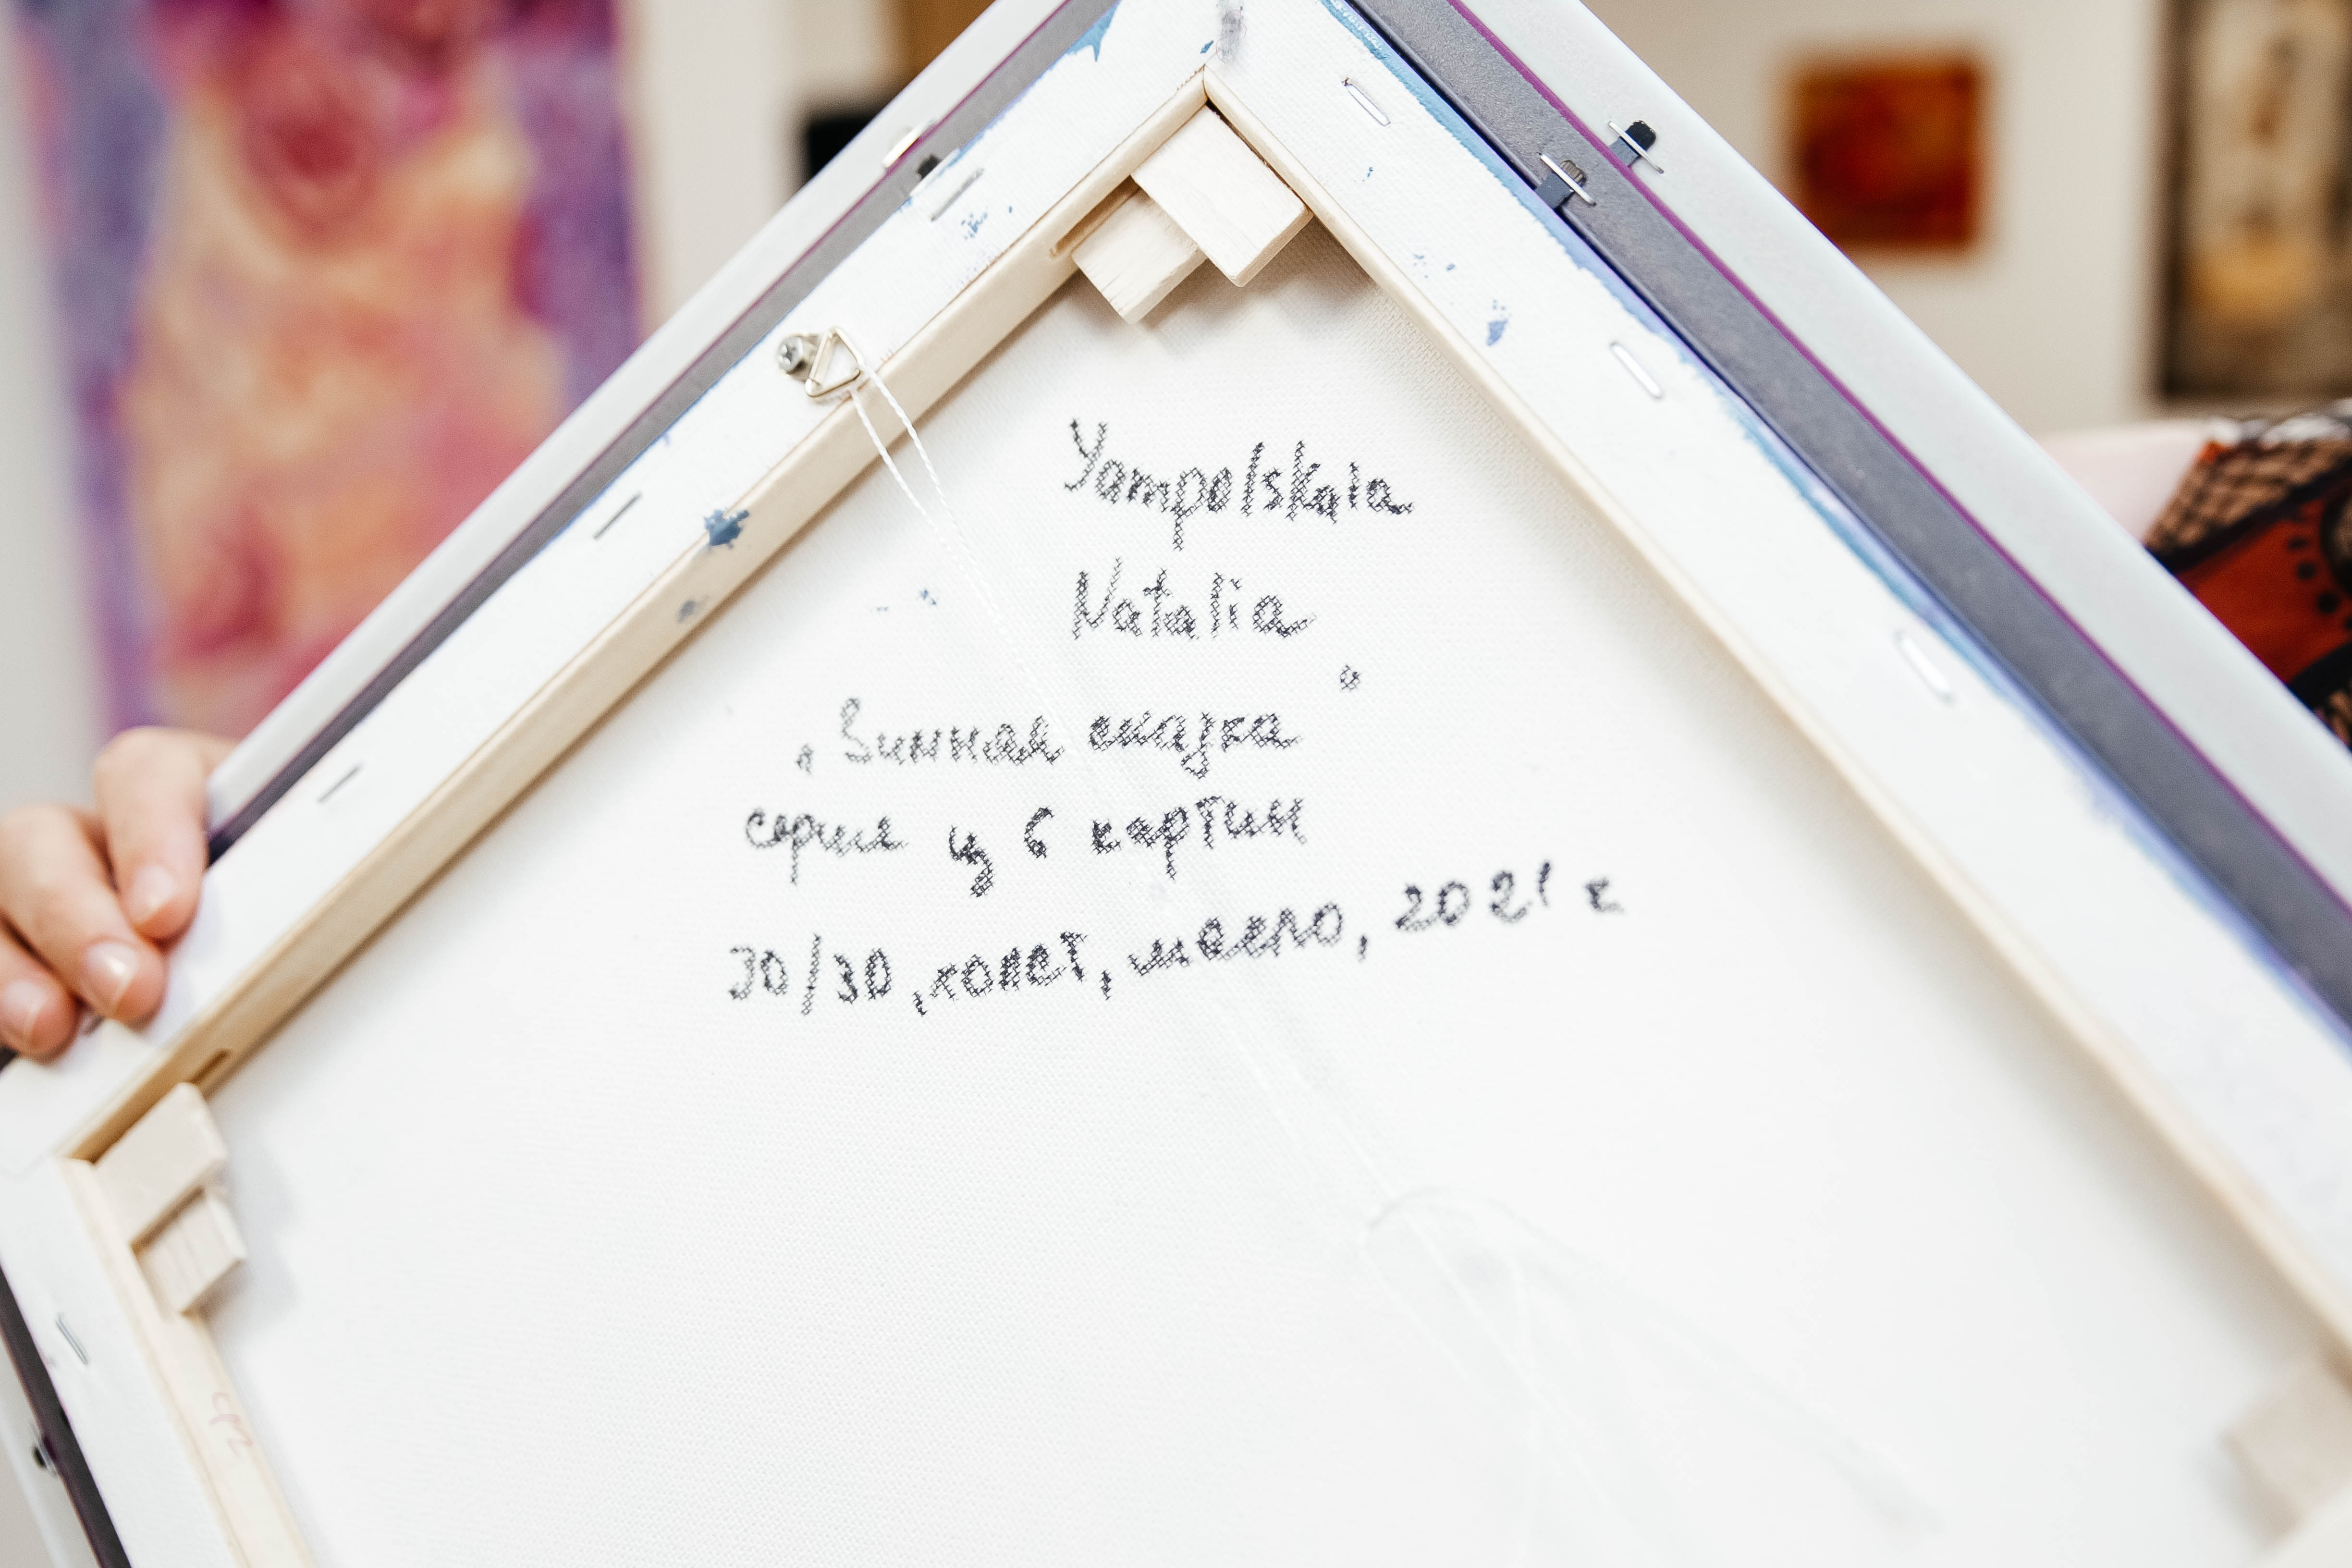 Yampolskaia
Natalia
„Зимняя сказка"
серия из 6 картин
30/30, холст, масло, 2021 г.